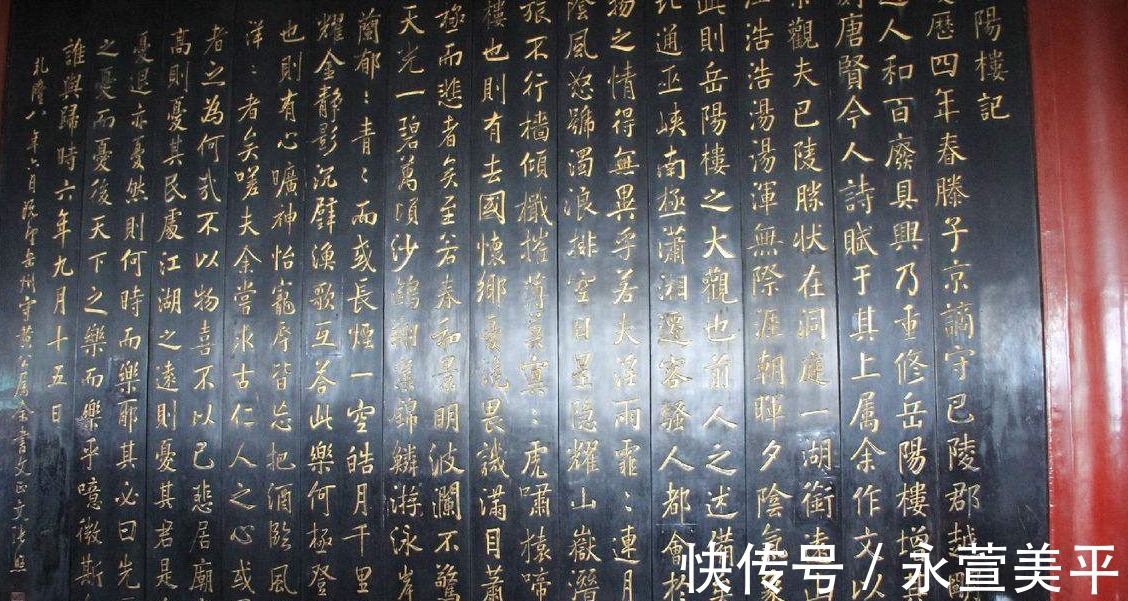 陽樓記
歷四年春滕子京謫守巴陵郡越明
人和百廢具興乃重修岳陽樓增其
唐賢今人詩賦于其上属余作文以
觀夫巴陵勝狀在洞庭一湖銜遠山
浩浩湯湯渾無際涯朝暉夕陰氣象
則岳陽樓之大觀也前人之述備
通巫峽南極瀟湘遷客騷人都會於
揚之情得無異乎若夫淫雨霏:連月
陰風怒號濁浪排空日星隱耀山嶽潛
旅不行檣傾檝摧薄暮冥:虎嘯猿啼
樓也則有去國懷鄉憂讒畏譏滿目蕭
極而悲者矣至若春和景明波瀾不驚
天光一碧萬頃沙鷗翔集錦鱗游泳岸
蘭郁:青:而或長煙一空皓月千里
耀金靜影沉璧漁歌互答此樂何極登
也則有心曠神怡寵辱皆忘把酒臨風
洋:者矣嗟夫余嘗求古仁人之心或
者之為何哉不以物喜不以己悲居廟
高則憂其民處江湖之遠則憂其君是
憂退亦憂然則何時而樂耶其必曰先
之憂而憂後天下之樂而樂乎噫微斯
誰與歸時六年九月十五日
乾隆八年六月岳州守黃公屬余書文正文張照
快传号/永萱美平